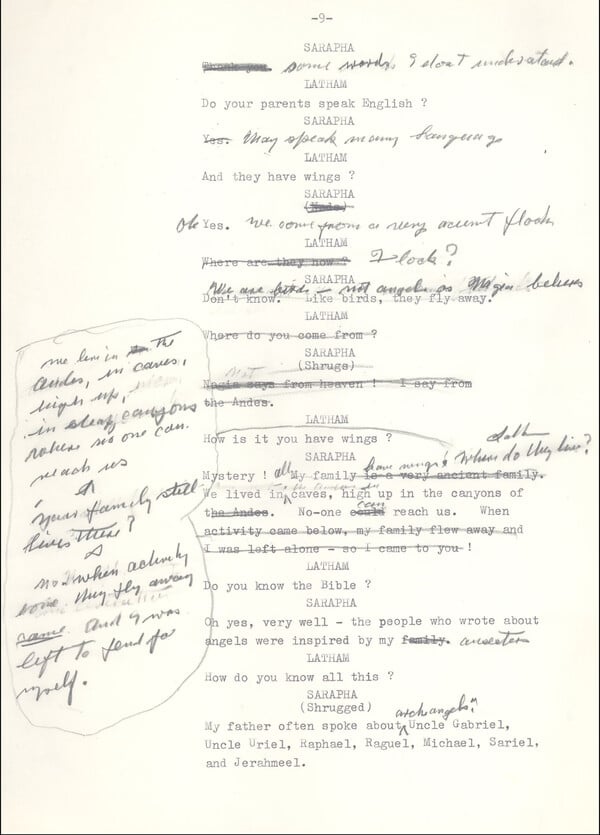 -9-
SARAPHA
Thank you. some words I dont understand.
LATHAM
Do your parents speak English ?
SARAPHA
Yes. May speak many languags
LATHAM
And they have wings ?
SARAPHA
(Nods)
Oh Yes. We come from a very acient flock
LATHAM
Where are they now ? Flock?
SARAPHA
We are birds - not angels as believes
Don't know. Like birds, they fly away.
LATHAM
Where do you come from ?
SARAPHA
(Shrugs)
not
says from heaven ! I say from
the Andes.
LATHAM
How is it you have wings ?
SARAPHA
Mystery ! all My family have wings! is a very ancient family. Where do they live?
We lived in caves, high up in the canyons of
the Andes. No-one could can reach us. When
activity came below, my family flew away and
I was left alone - so I came to you !
LATHAM
Do you know the Bible ?
SARAPHA
Oh yes, very well - the people who wrote about
angels were inspired by my family. ancesters
LATHAM
How do you know all this ?
SARAPHA
(Shrugged)
archangels"
My father often spoke about Uncle Gabriel,
Uncle Uriel, Raphael, Raguel, Michael, Sariel,
and Jerahmeel.
we live in the
Andes, in caves,
high up,
in steep canyons
where no one can
reach us
your family still
lives there?
no. when activity
came they fly away
came and I was
left to fend for
myself.